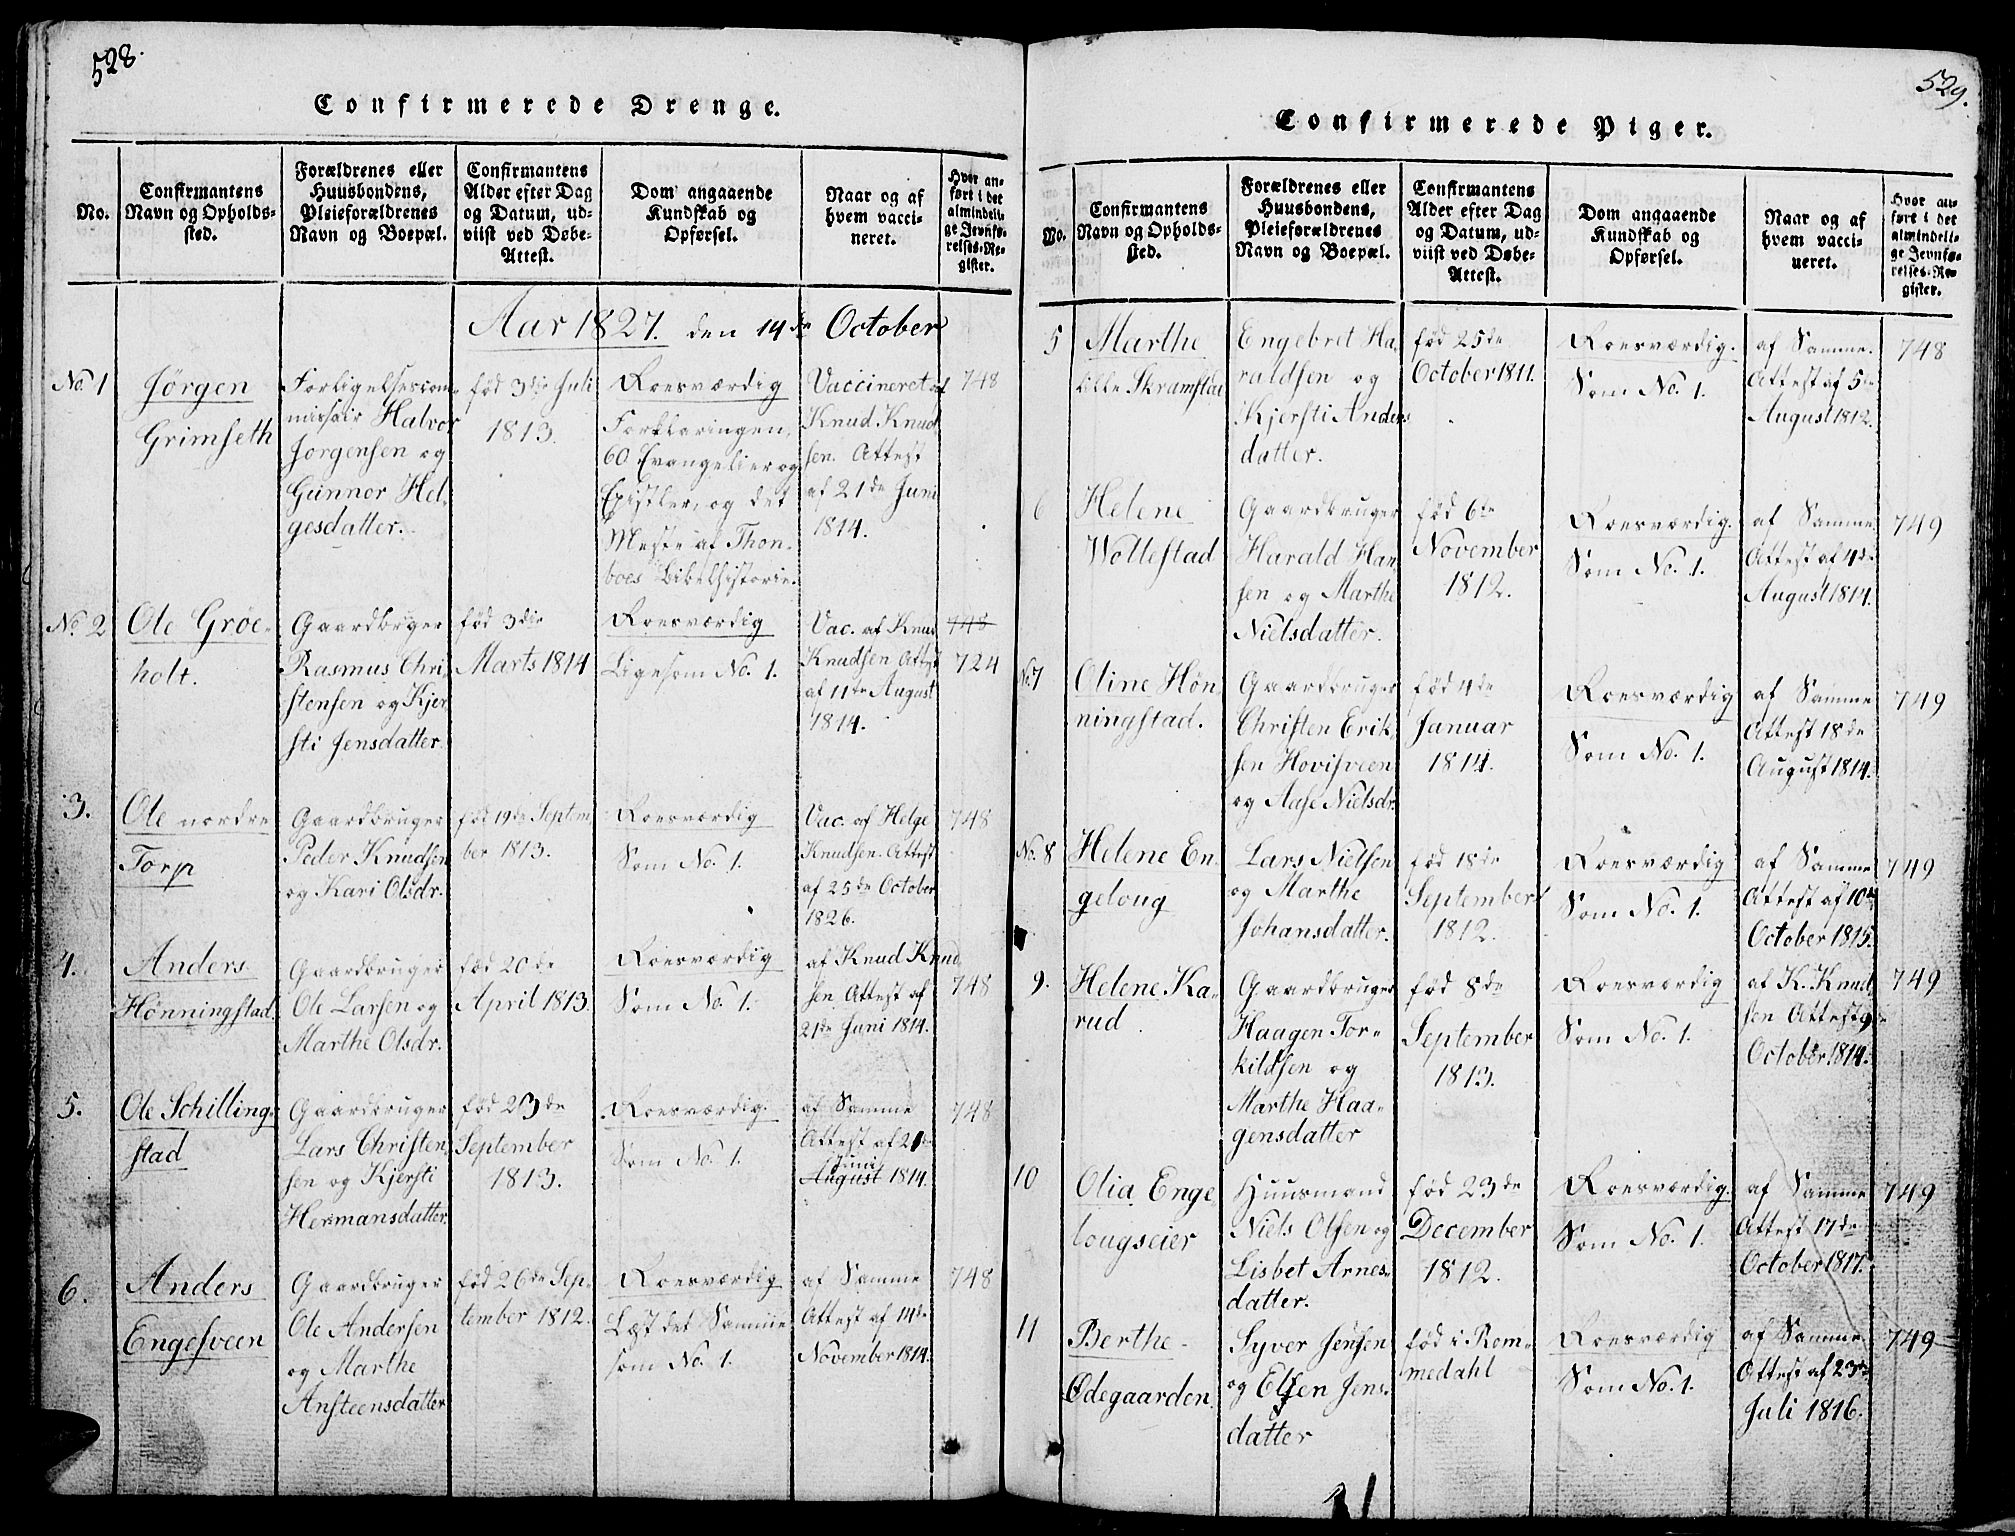 528.
Confirmerede Drenge.
No.
Confirmantens
Navn og Opholds-
sted.
Forældrenes eller
Huusbondens,
Pleieforældrenes
Navn og Boepæl.
Confirmantens
Alder efter Dag
og Datum, ud-
viist ved Døbe-
Attest.
Dom angaaende
Kundskab og
Opførsel.
Naar og af
hvem vacci-
neret.
Hvor an-
ført i det
almindeli-
ge Jevnfø-
relses-Re-
gister.
Aar 1827. den 14de October
No. 1
Jørgen
Grimseth
Forligelsescom-
missair Halvor
Jørgensen og
Gunnor Hel-
gesdatter.
født 3die Juli
1813.
Roesværdig
Forklaringen,
60 Evangelier og
Epistler, og det
Meste af Thon-
boes Bibelhistorie.
Vaccineret af
Knud Knud-
sen. Attest
af 21de Juni
1814.
748
No. 2
Ole Grøe-
holt.
Gaardbruger
Rasmus Chri-
stensen og Kjer-
sti Jensdatter.
fød 3die
Marts 1814
Roesværdig
Ligesom No. 1.
Vac. af Knud
Knudsen Attest
af 11te August
1814.
748
724
3.
Ole nordre
Torp
Gaardbruger
Peder Knudsen
og Kari Olsdr.
fød 19de Septem-
ber 1813.
Roesværdig
Som No. 1.
Vac. af Helge
Knudsen. Attest
af 25de October
1826.
748
4.
Anders
Hønningstad
Gaardbruger
Ole Larsen og
Marthe Olsdr.
fød 20de
April 1813.
Roesværdig
Som No. 1.
af Knud Knud-
sen Attest af
21de Juni 1814.
748
5.
Ole Schilling-
stad
Gaardbruger
Lars Christen-
sen og Kjersti
Hermansdatter.
fød 23de
September
1813.
Roesværdig.
Som No. 1.
af Samme
Attest af 21de
Juni
August 1814.
748
6.
Anders
Engesveen
Gaardbruger
Ole Andersen
og Marthe
Ansteensdatter
fød 26de Sep-
tember 1812.
Roesværdig
Læst det Samme
som No. 1.
af Samme
Attest af 14de
November 1814.
748
529.
Confirmerede Piger.
No.
Confirmantens
Navn og Opholds-
sted.
Forældrenes eller
Huusbondens,
Pleieforældrenes
Navn og Boepæl.
Confirmantens
Alder efter Dag
og Datum, ud-
viist ved Døbe-
Attest.
Dom angaaende
Kundskab og
Opførsel.
Naar og af
hvem vacci-
neret.
Hvor an-
ført i det
almindeli-
ge Jevnfø-
relses-Re-
gister.
5
Marthe
lille Skramstad
Engebret Ha-
raldsen og
Kjersti Anders
datter.
fød 25de
October 1811.
Roesværdig.
Som No. 1.
af Samme.
Attest af 5te
August 1812.
748
6
Helene
Wollestad
Gaardbruger
Harald Han-
sen og Marthe
Nielsdatter.
fød 6te
November
1812.
Roesværdig.
Som No. 1.
af Samme
Attest af 4de
August 1814.
749
No. 7
Oline Høn-
ningstad.
Gaardbruger
Christen Erik-
sen Hovisveen
og Aase Nielsdr.
fød 4de
Januar
1814.
Roesværdig
Som No. 1.
af Samme
Attest 18de
August 1814.
749
No. 8
Helene En-
geloug
Lars Nielsen
og Marthe
Johansdatter.
fød 18de
September
1812.
Roesværdig
Som No. 1.
af Samme
Attest af 10de
October 1815.
749
9.
Helene Ka-
rud
Gaardbruger
Haagen Tor-
kildsen og
Marthe Haa-
gensdatter
fød 8de
September
1813.
Roesværdig
Som No. 1.
af K. Knud-
sen Attest 9de
October 1814.
749
10
Olia Enge
lougseier
Huusmand
Niels Olsen og
Lisbet Arnes-
datter.
fød 23de
December
1812.
Roesværdig.
Som No. 1.
af Samme
Attest 17de
October 1817.
749
11
Berthe
Ødegaarden.
Syver Jensen
og Elsen Jens-
datter
fød i Rom-
medahl
Roesværdig
Som No. 1.
af Samme
Attest af 23de
Juli 1816.
749